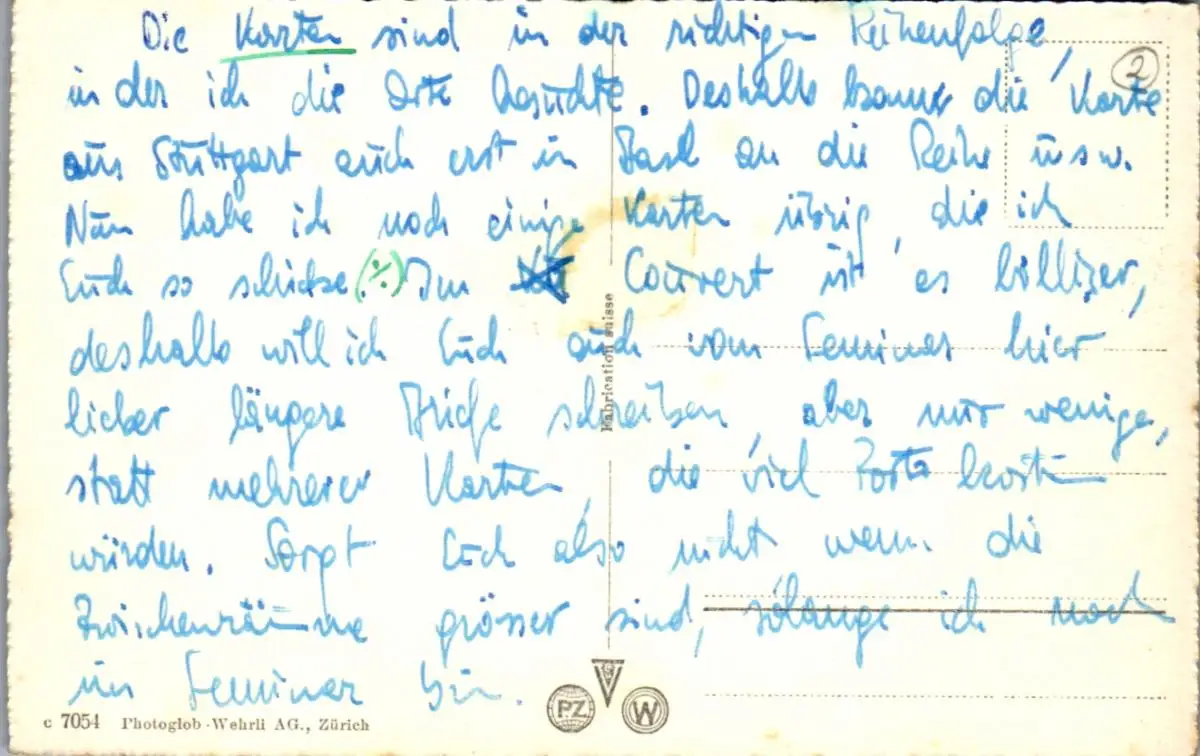 Die Karten sind in der richtigen Reihenfolge,
2
in der ich die Orte besuchte. Deshalb kommt die Karte
aus Stuttgart auch erst in Basel an die Reihe usw.
Nun habe ich noch einige Karten übrig, die ich
Euch so schicke (./.) Im Couvert ist es billiger,
Fabrication suisse
deshalb will ich Euch auch vom Seminar hier
lieber längere Briefe schreiben, aber nur wenige,
statt mehrerer Karten, die viel Porto kosten
würden. Sorgt Euch also nicht wenn die
Zwischenräume grösser sind, solange ich noch
im Seminar bin.
c 7054 Photoglob-Wehrli AG., Zürich
PZ W